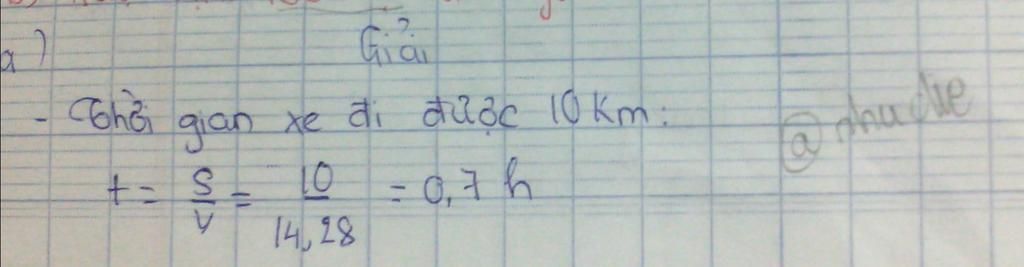 a) Giải
- Thời gian xe đi được 10 km:
t = S/V = 10/14,28 = 0,7 h